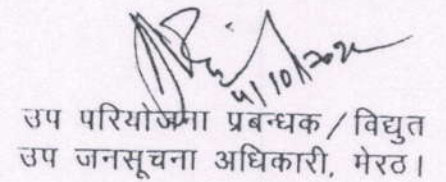 4/10/2022
उप परियोजना प्रबन्धक / विद्युत
उप जनसूचना अधिकारी, मेरठ।